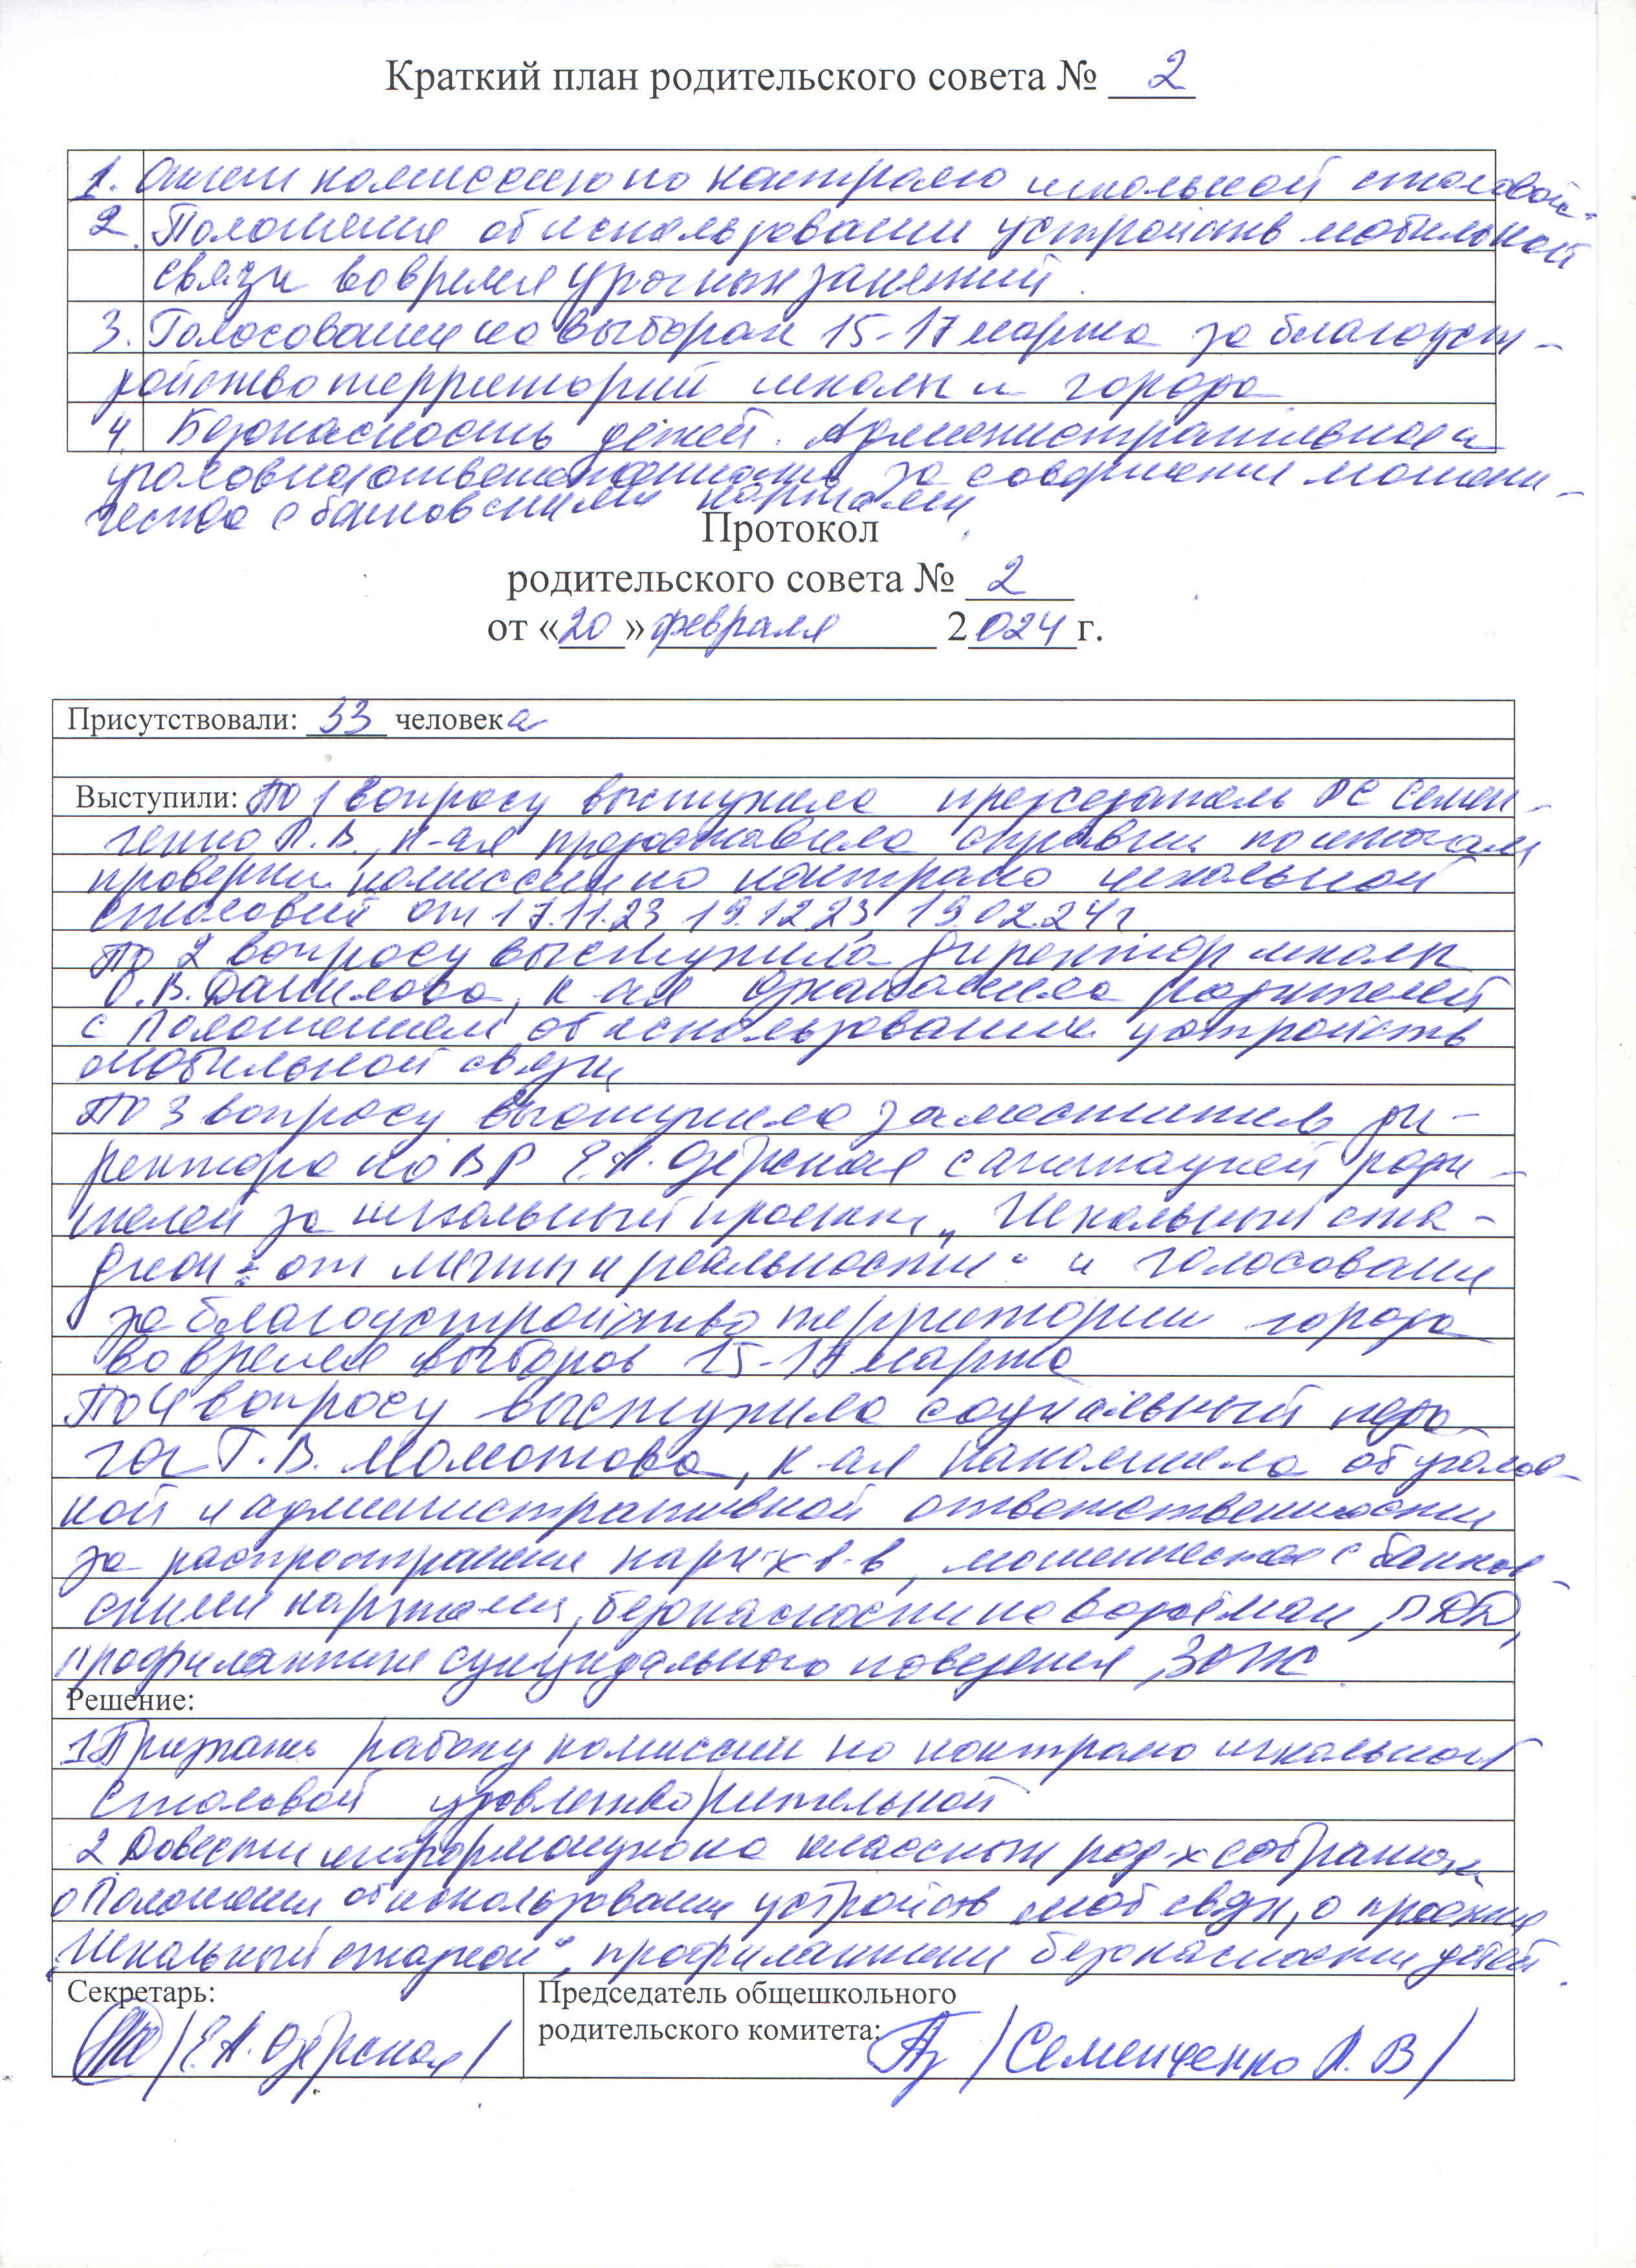 Краткий план родительского совета № 2
1. Отчет комиссию по контролю школьной столовой.
2. Положение об использовании устройств мобильной
связи во время урочных занятий.
3. Голосование на выборах 15-17 марта за благоуст-
ройство территорий школы и города
4. Безопасность детей. Административная и
уголовная ответственность за совершение мошени-
чества с банковскими картами.
Протокол
родительского совета № 2
от «20» февраля 2024 г.
Присутствовали: 33 человека
Выступили: По 1 вопросу выступила председатель РС Семен-
ченко Л.В., к-ая предоставила справки по итогам
проверки комиссии по контролю школьной
столовой от 17.11.23 19.12.23, 19.02.24г
По 2 вопросу выступила директор школы
О.В. Данилова, к-ая ознакомила родителей
с Положением об использовании устройств
мобильной связи
По 3 вопросу выступила заместитель ди-
ректора по ВР Е.А. Озёрская с агитацией роди-
телей за школьный проект „Школьный ста-
дион: от мечты к реальности“ и голосовании
за благоустройство территории города
во время выборов 15-17 марта
По 4 вопросу выступила социальный педа
гог Г.В. Моматова, к-ая напомнила об уголов-
ной и административной ответственности
за распространение нарк-х в-в, мошенчества с банков-
скими картами, безопасности на водоёмах, ПДД,
профилактике суицидального поведения, ЗОЖ
Решение:
1 Признать работу комиссии по контролю школьной
столовой удовлетворительной
2 Довести информацию на классных род-х собраниях
о Положении об использовании устройств моб связи, о проекте
„Школьный стадион“, профилактики безопасности детей.
Секретарь: Председатель общешкольного
родительского комитета:
/Е.А. Озёрская/ /Семенченко Л.В/